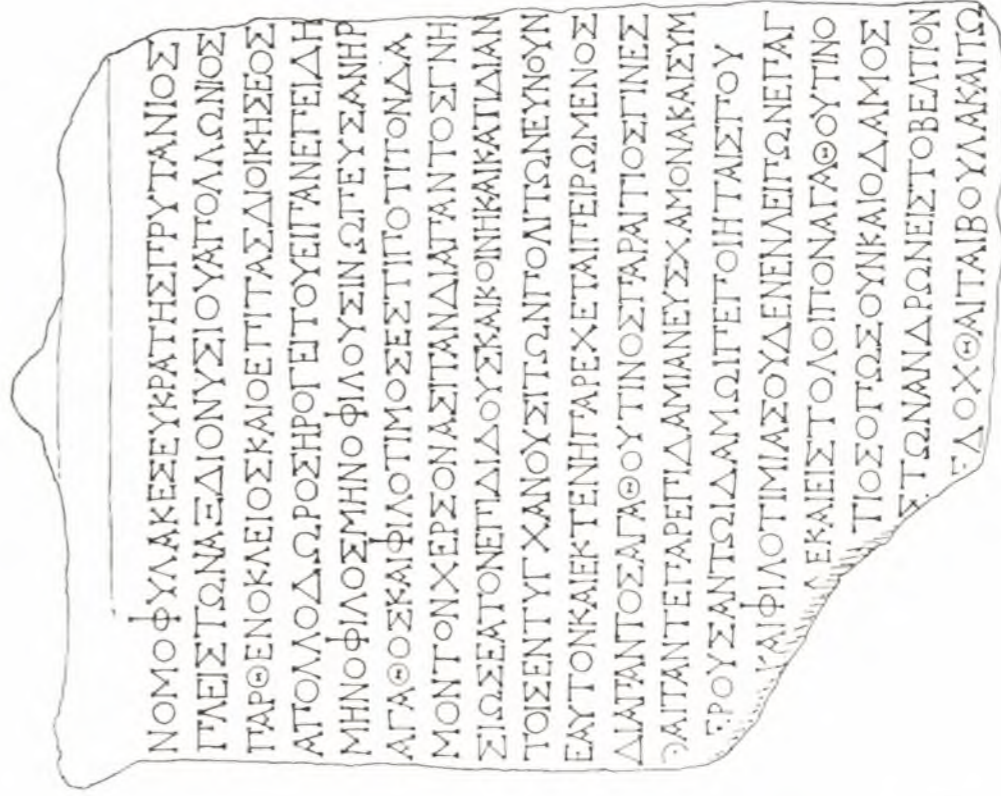 ΝΟΜΟΦΥΛΑΚΕΣΕΥΚΡΑΤΗΣΠΡΥΤΑΝΙΟΣ
ΠΛΕΙΣΤΩΝΑΞΔΙΟΝΥΣΙΟΥΑΠΟΛΛΩΝΙΟΣ
ΠΑΡΘΕΝΟΚΛΕΙΟΣΚΑΙΟΕΠΙΤΑΣΔΙΟΙΚΗΣΕΟΣ
ΑΠΟΛΛΟΔΩΡΟΣΗΡΟΓΕΙΤΟΥΕΙΠΑΝΕΠΕΙΔΗ
ΜΗΝΟΦΙΛΟΣΜΗΝΟΦΙΛΟΥΣΙΝΩΠΕΥΣΑΝΗΡ
ΑΓΑΘΟΣΚΑΙΦΙΛΟΤΙΜΟΣΕΣΤΙΠΟΤΙΤΟΝΔΑ
ΜΟΝΤΟΝΧΕΡΣΟΝΑΣΙΤΑΝΔΙΑΠΑΝΤΟΣΓΝΗ
ΣΙΩΣΕΑΤΟΝΕΠΙΔΙΔΟΥΣΚΑΙΚΟΙΝΗΚΑΙΚΑΤΙΔΙΑΝ
ΤΟΙΣΕΝΤΥΓΧΑΝΟΥΣΙΤΩΝΠΟΛΙΤΩΝΕΥΝΟΥΝ
ΕΑΥΤΟΝΚΑΙΕΚΤΕΝΗΠΑΡΕΧΕΤΑΙΠΕΙΡΩΜΕΝΟΣ
ΔΙΑΠΑΝΤΟΣΑΓΑΘΟΥΤΙΝΟΣΠΑΡΑΙΤΙΟΣΓΙΝΕΣ
ΘΑΙΠΑΝΤΕΠΑΡΕΠΙΔΑΜΙΑΝΕΥΣΧΑΜΟΝΑΚΑΙΣΥΜ
ΕΡΟΥΣΑΝΤΩΙΔΑΜΩΙΠΕΠΟΙΗΤΑΙΣΠΟΥ
ΚΑΙΦΙΛΟΤΙΜΙΑΣΟΥΔΕΝΕΝΛΕΙΠΩΝΕΠΑΓ
ΔΕΚΑΙΕΙΣΤΟΛΟΙΠΟΝΑΓΑΘΟΥΤΙΝΟ
ΤΙΟΣΟΠΩΣΟΥΝΚΑΙΟΔΑΜΟΣ
ΣΤΩΝΑΝΔΡΩΝΕΙΣΤΟΒΕΛΤΙΟΝ
ΕΔΟΧΘΑΙΤΑΙΒΟΥΛΑΚΑΙΤΩ